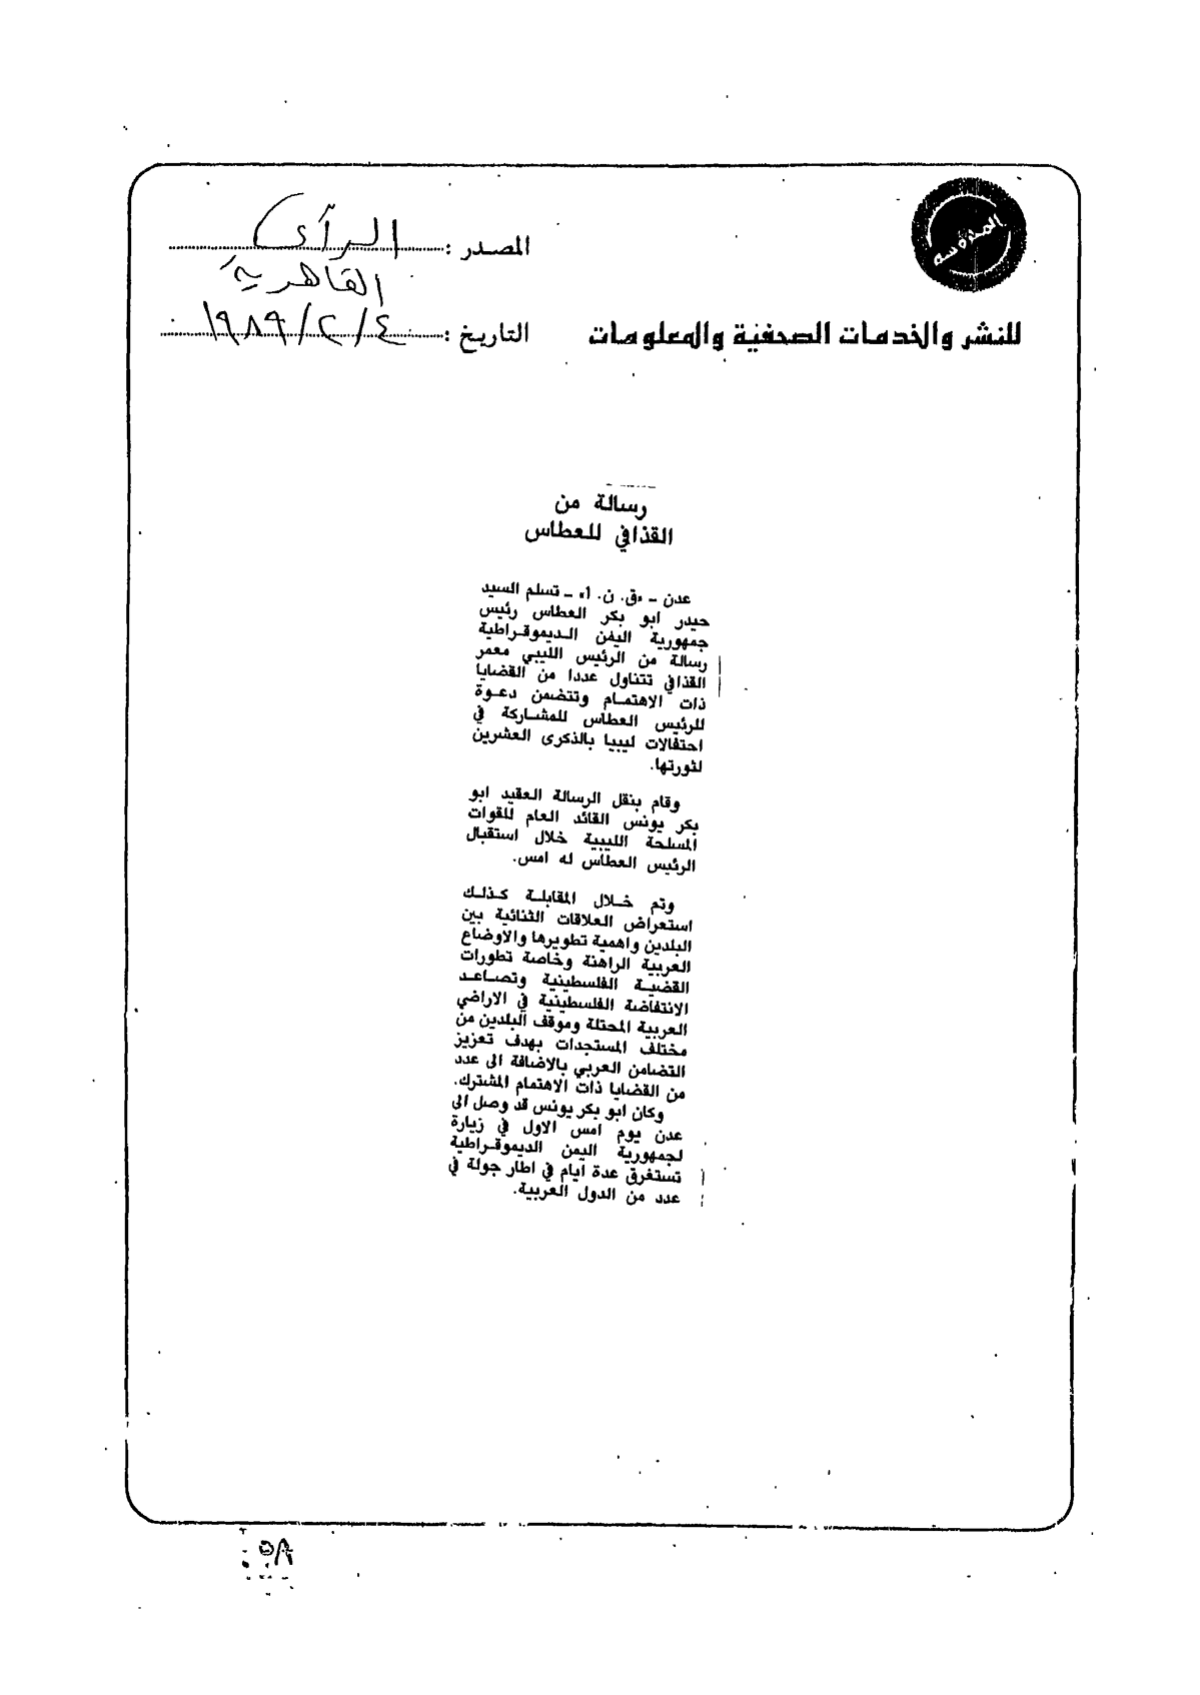 المحروسة
للنشر والخدمات الصحفية والمعلومات
المصدر : الرأى
القاهرية
التاريخ : ٤/٢/١٩٨٩
رسالة من
القذافي للعطاس
عدن - «ق. ن. ا» - تسلم السيد
حيدر ابو بكر العطاس رئيس
جمهورية اليمن الديموقراطية
رسالة من الرئيس الليبي معمر
القذافي تتناول عددا من القضايا
ذات الاهتمام وتتضمن دعوة
للرئيس العطاس للمشاركة في
احتفالات ليبيا بالذكرى العشرين
لثورتها.
وقام بنقل الرسالة العقيد ابو
بكر يونس القائد العام للقوات
المسلحة الليبية خلال استقبال
الرئيس العطاس له امس.
وتم خلال المقابلة كذلك
استعراض العلاقات الثنائية بين
البلدين واهمية تطويرها والاوضاع
العربية الراهنة وخاصة تطورات
القضية الفلسطينية وتصاعد
الانتفاضة الفلسطينية في الاراضي
العربية المحتلة وموقف البلدين من
مختلف المستجدات بهدف تعزيز
التضامن العربي بالاضافة الى عدد
من القضايا ذات الاهتمام المشترك.
وكان ابو بكر يونس قد وصل الى
عدن يوم امس الاول في زيارة
لجمهورية اليمن الديموقراطية
تستغرق عدة ايام في اطار جولة في
عدد من الدول العربية.
٥٨